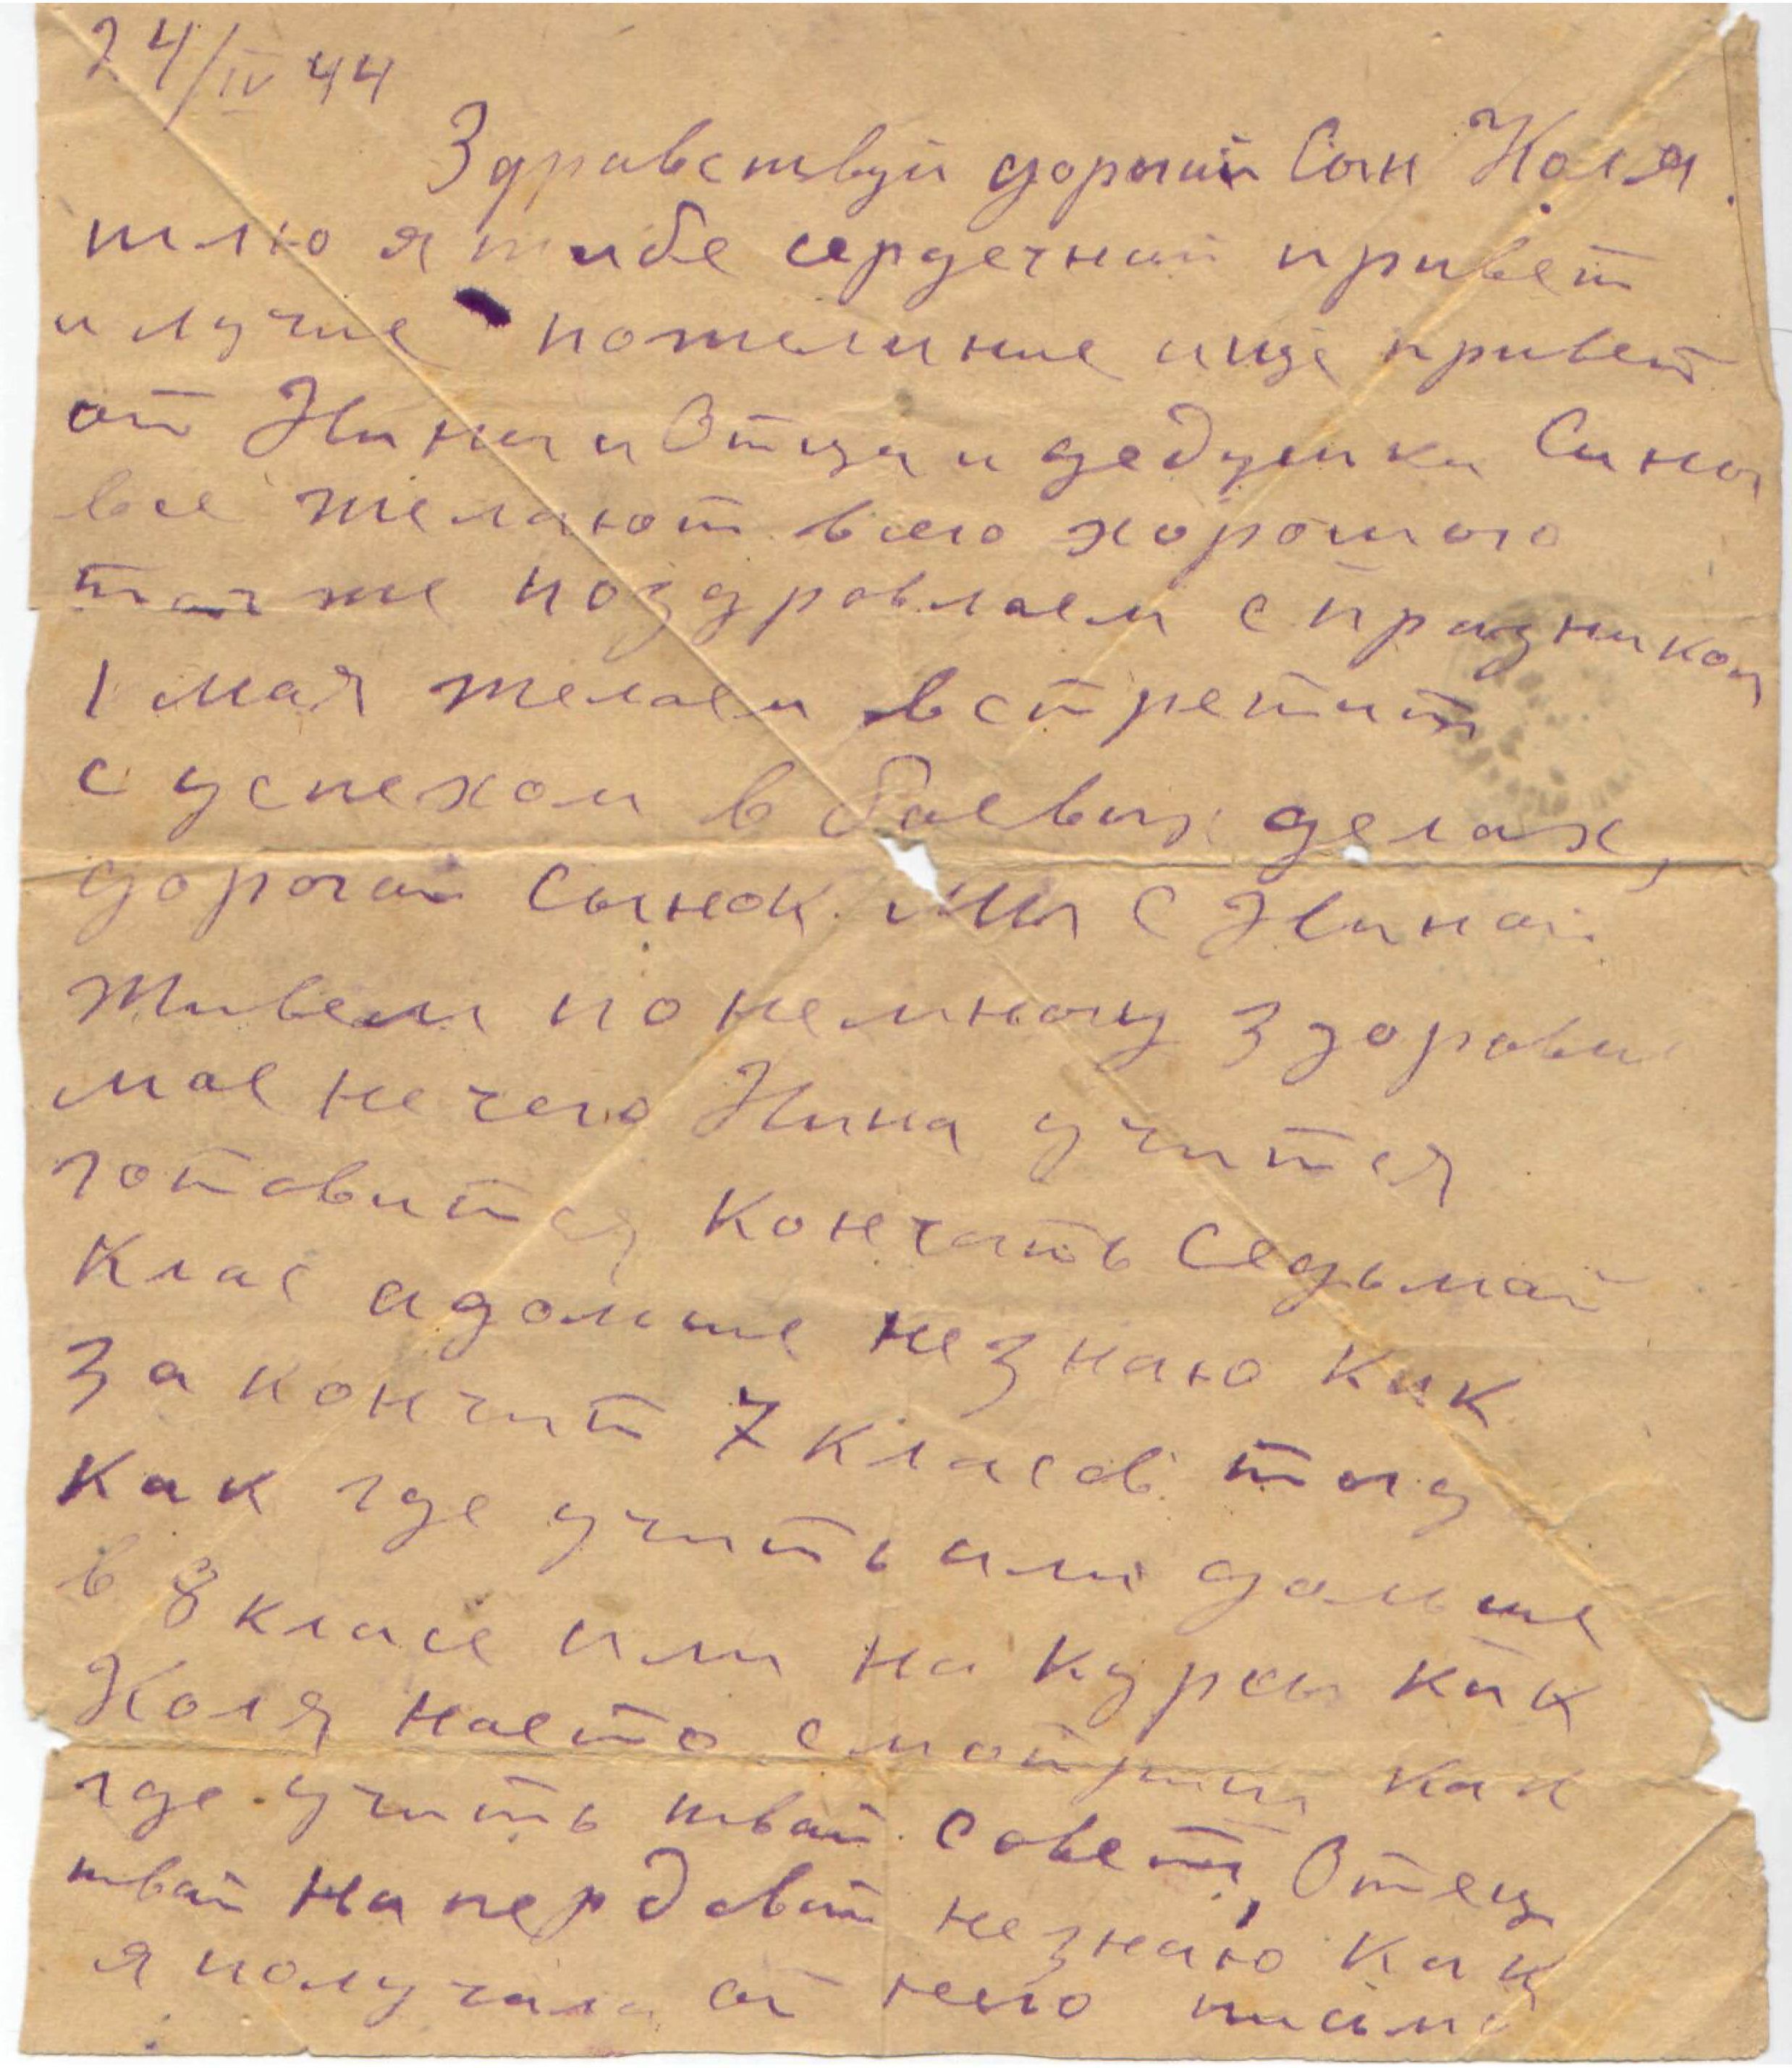 24/IV 44
Здравствуй дорогии Сын Коля.
шлю я тибе сердечнаи привет
и лучие пожелиние ище привет
от Нины и Отца и дедушки Сины
все желают всего хорошого
так же поздровлаем с празником
1 мая желаем встретит
с успехом в боевых делах,
дорогаи Сынок мы с Нинай
живем понемногу здоровие
мае нечего Нина учится
готовится кончать Седьмаи
Клас адольше незнаю Как
закончит 7 класов тогд
Как где учить или дольше
в 8 класе или на курсы как
Коля насто смотриш как
где учить тваи совет, Отец
тваи на пердавой незнаю Как
я получала от него писмо